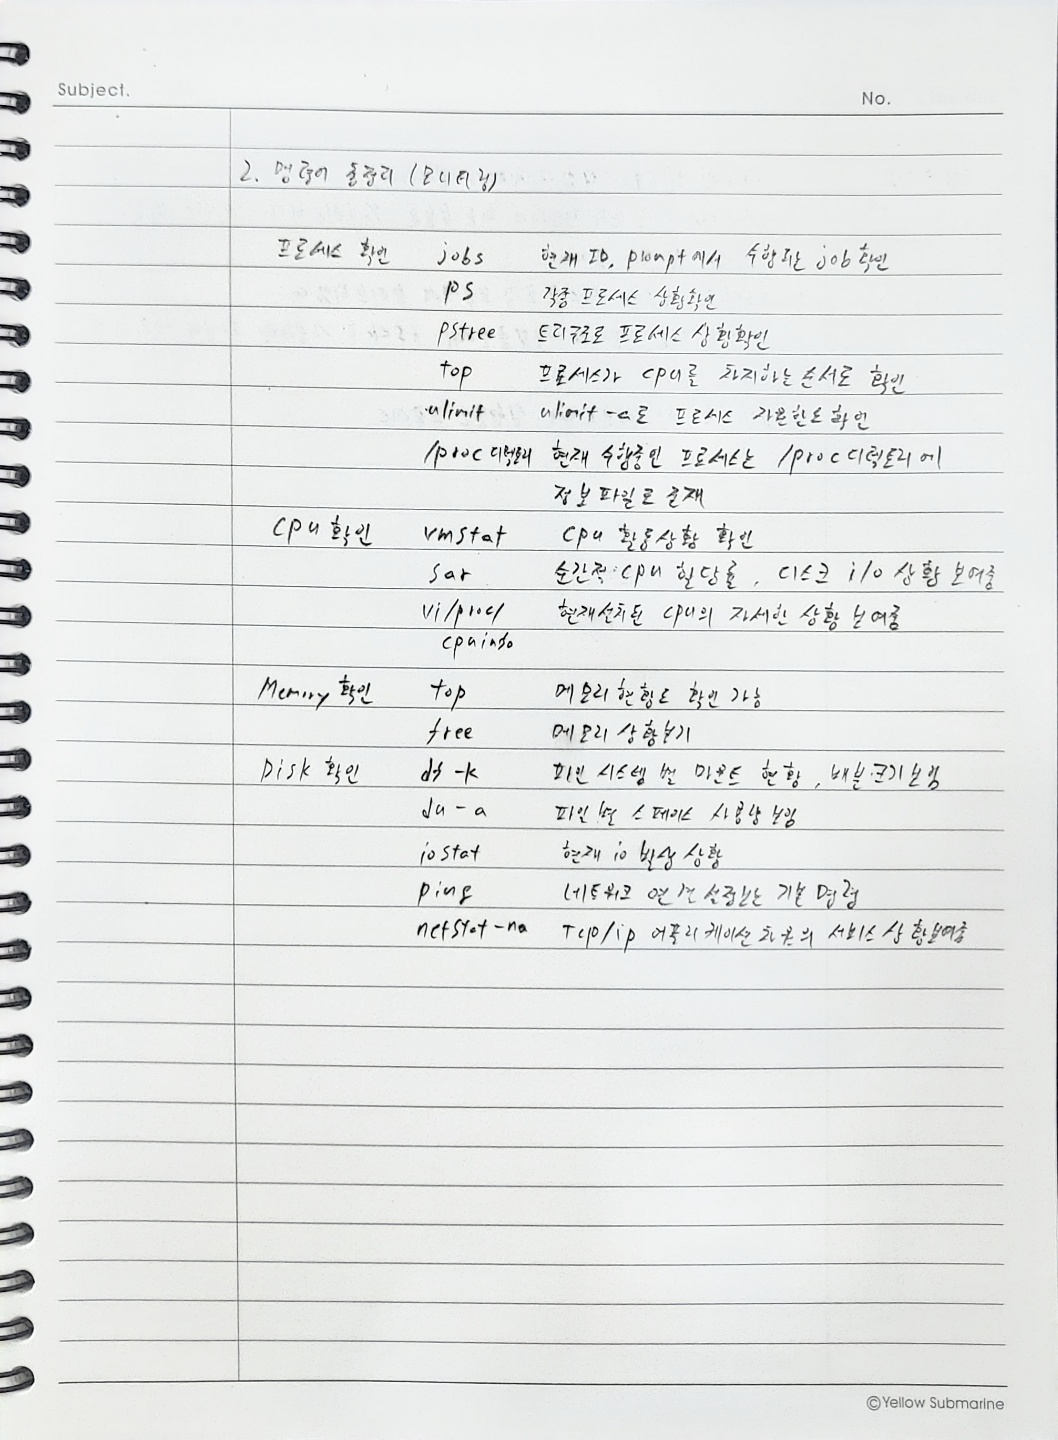 Subject.
No.
2. 명령어 총정리 (모니터링)
프로세스 확인 jobs 현재 ID, prompt에서 수행되는 job 확인
ps 각종 프로세스 상황확인
pstree 트리구조로 프로세스 상황확인
top 프로세스가 cpu를 차지하는 순서로 확인
ulimit ulimit -a로 프로세스 자원한도 확인
/proc 디렉토리 현재 수행중인 프로세스는 /proc 디렉토리에
정보파일로 존재
Cpu 확인 vmstat cpu 활동상황 확인
sar 순간적 cpu 할당률, 디스크 i/o 상황 보여줌
vi /proc/ 현재설치된 cpu의 자세한 상황 보여줌
cpuinfo
Memory 확인 top 메모리현황도 확인 가능
free 메모리 상황보기
Disk 확인 df -k 파일 시스템 별 마운트 현황, 배분크기보임
du -a 파일별 스페이스 사용량 보임
iostat 현재 io 발생 상황
ping 네트워크 연결 설정보는 기본 명령
netstat -na Tcp/ip 어플리케이션 차원의 서비스 상황보여줌
©Yellow Submarine